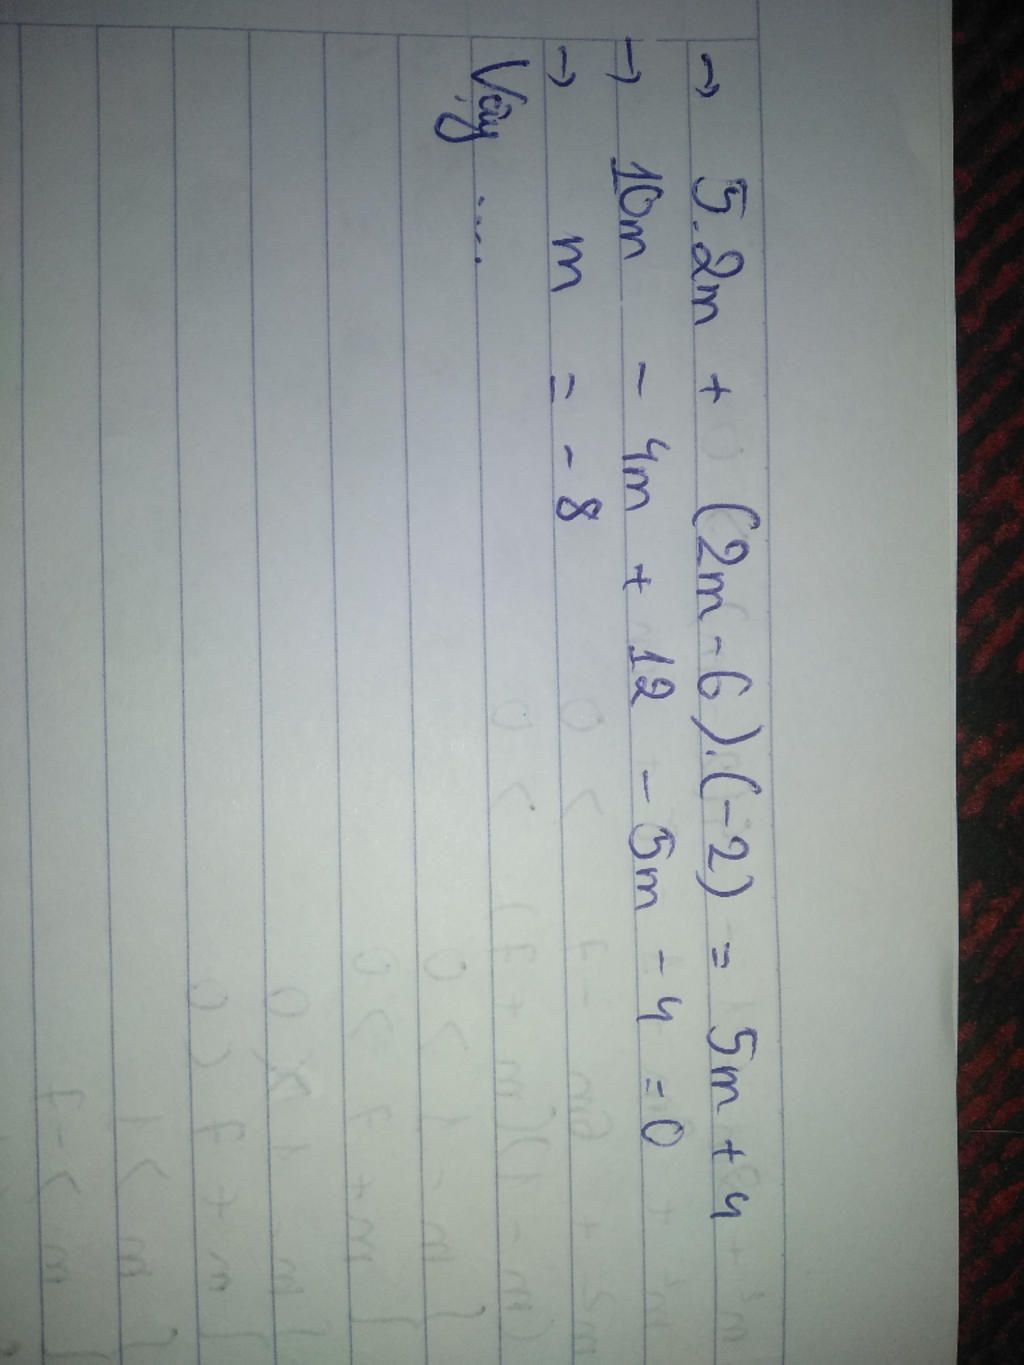 → 5.2m + (2m - 6).(-2) = 5m + 4
→ 10m - 4m + 12 - 5m - 4 = 0
→ m = - 8
Vậy ....